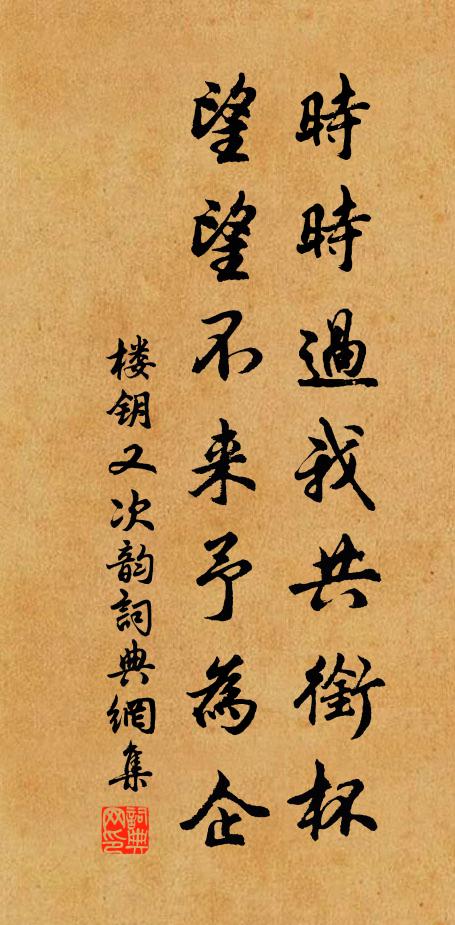 時時過我共銜杯
望望不来予為企
楼钥又次韵詞典網集
詞典网印